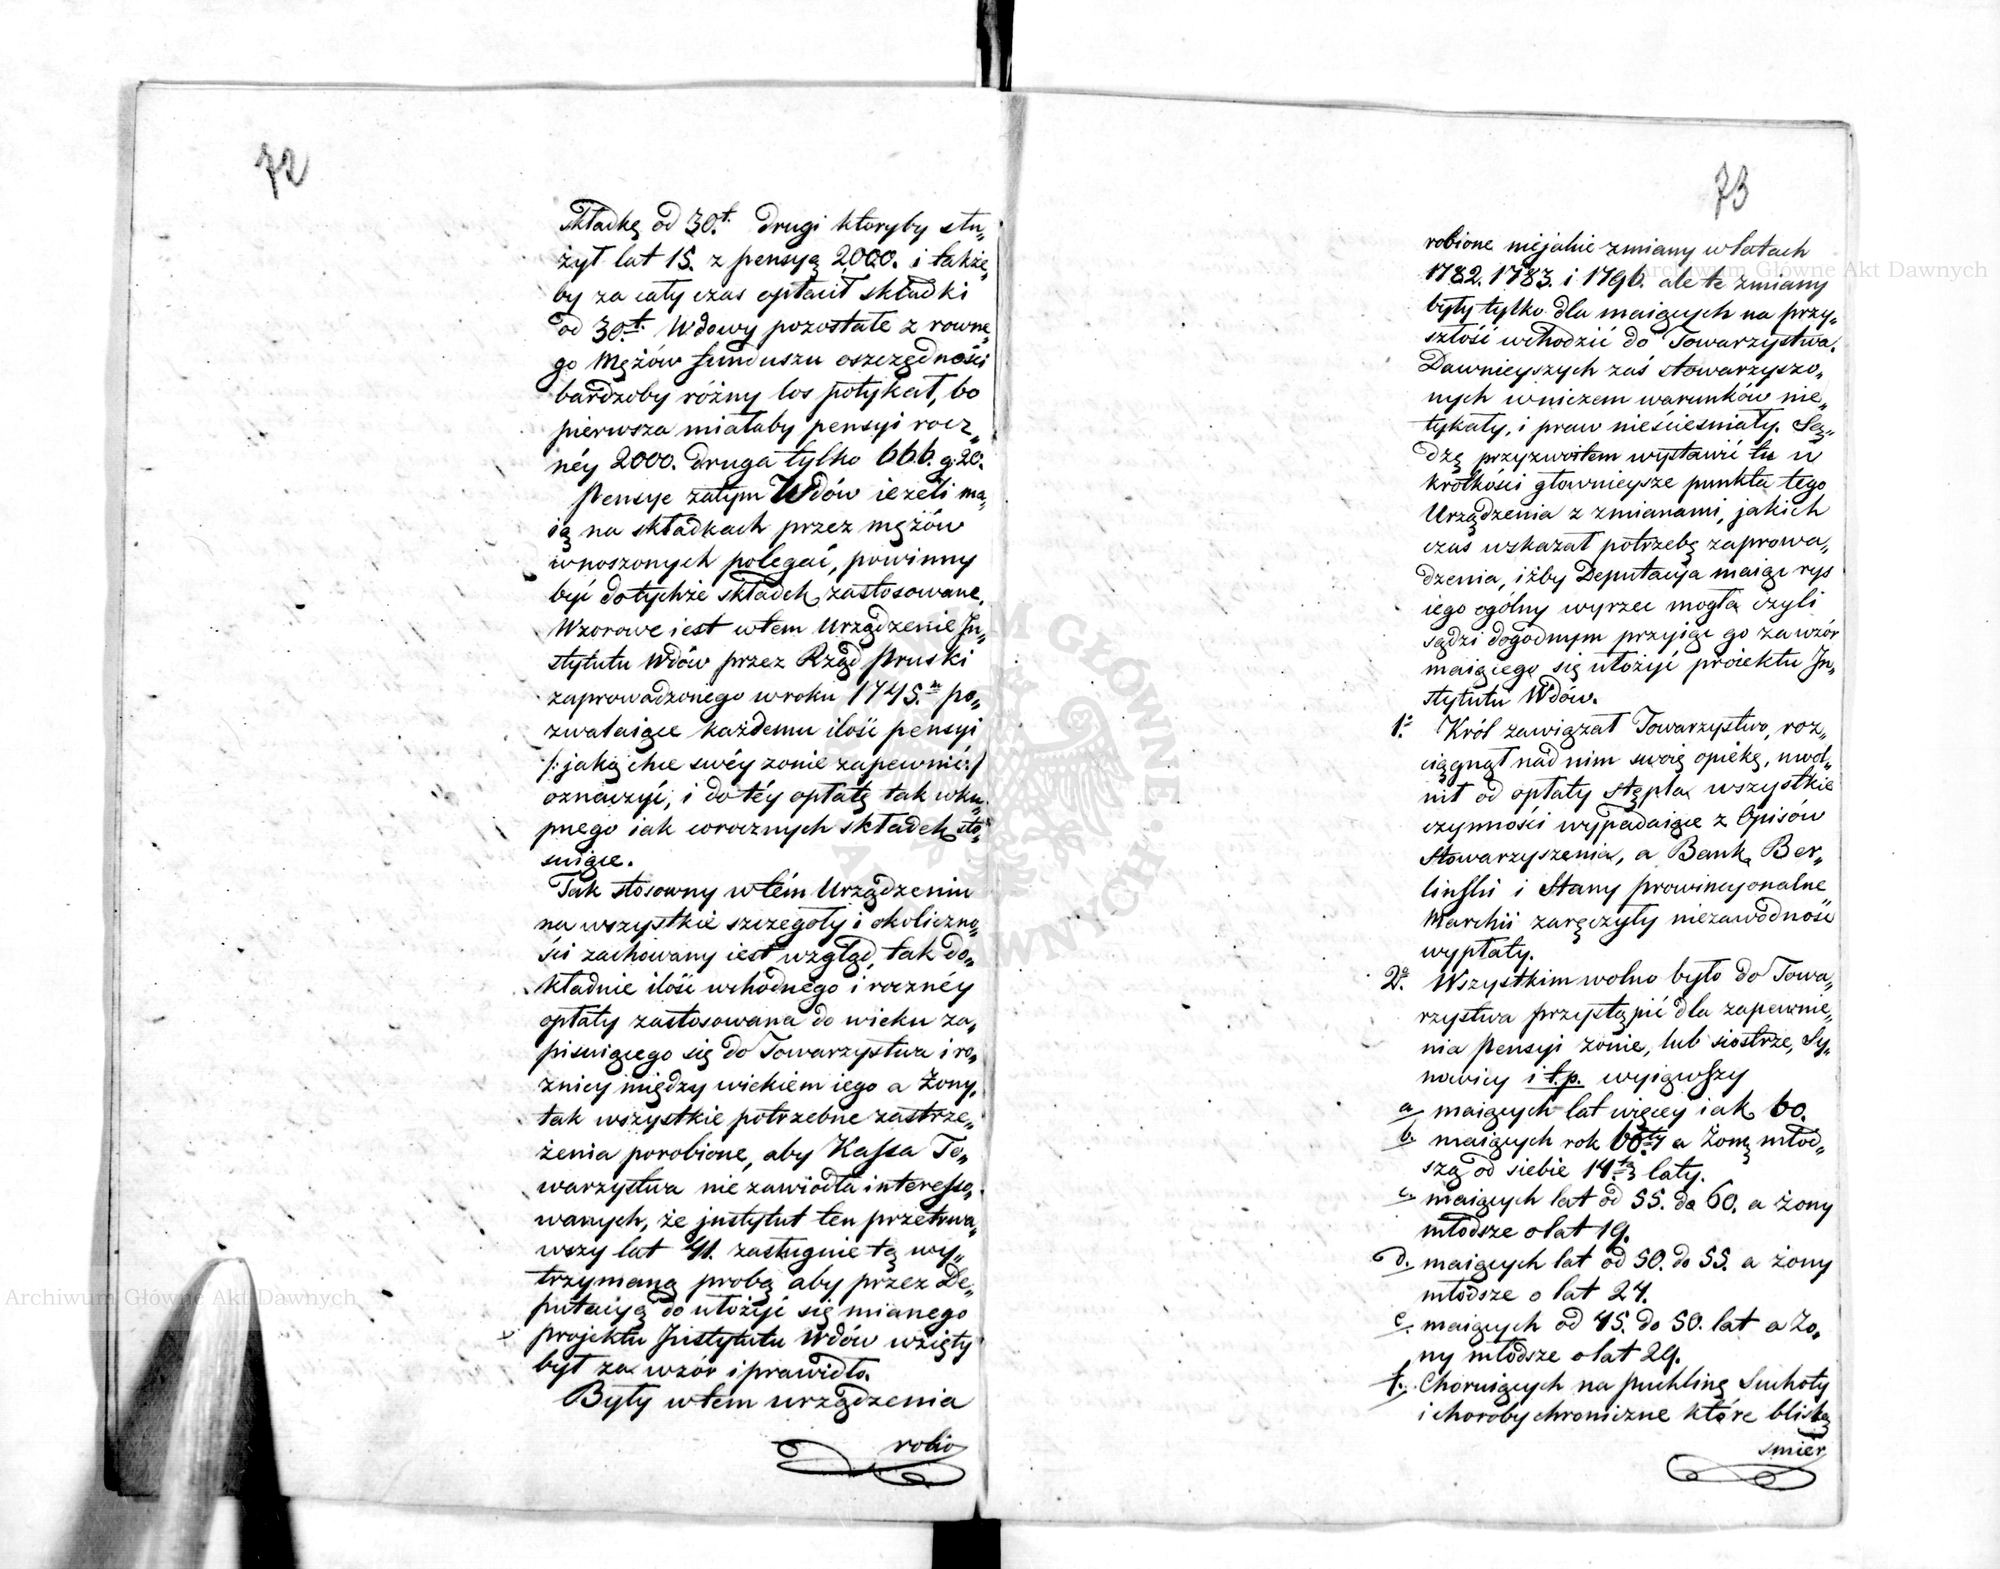 72
składkę od 30.t. Drugi ktoryby słu„
żył lat 15. z pensyą 2,000. i także„
by za cały czas opłacił składki
od 30.t. Wdowy pozostałe z rowne„
go Mężów funduszu oszczędności
bardzoby różny los potykał, bo
pierwsza miałaby pensyi rocz„
néy 2000. druga tylko 666. g: 20.
Pensye zatym Wdów ieżeli ma„
ią na składkach przez mężów
wnoszonych polegać, powinny
być do tychże składek zastosowane.
Wzorowe iest w tem Urządzenie In„
stytutu Wdów przez Rząd Pruski
zaprowadzonego w roku 1745.m po„
zwalaiące każdemu ilość pensyi
/: jaką chce swéy żonie zapewnić :/
oznaczyć, i do téy opłatę tak wku„
pnego iak corocznych składek sto„
suiące.
Tak stosowny w tém Urządzeniu
na wszystkie szczegoły i okoliczno„
ści zachowany iest wzgląd, tak do„
kładnie ilość wchodnego i rocznéy
opłaty zastosowana do wieku za„
pisuiącego się do Towarzystwa i ro„
znicy między wiekiem iego a Żony,
tak wszystkie potrzebne zastrze„
żenia porobione, aby Kassa To„
warzystwa nie zawiodła interesso„
wanych, że justytut ten przetrwa„
wszy lat 41. zasługuie tą wy„
trzymaną probą aby przez De„
putacyą do ułożyć się mianego
projektu Instytutu Wdów wzięty
był za wzór i prawidło.
Były w tem urządzenia
robio
73
robione niejakie zmiany w latach
1782. 1783. i 1796. ale te zmiany
były tylko dla maiących na przy„
szłość wchodzić do Towarzystwa.
Dawnieyszych zaś stowarzyszo„
nych w niczem warunków nie„
tykały, i praw nieścieśniały. Są„
dzę przyzwoitem wystawić tu w
krótkości głownieysze punkta tego
Urządzenia z zmianami, jakich
czas wskazał potrzebę zaprowa„
dzenia, iżby Deputacya maiąc rys
iego ogólny wyrzec mogła czyli
sądzi dogodnym przyiąć go za wzór
maiącego się ułożyć proiektu In„
stytutu Wdów.
1o Król zawiązał Towarzystwo, roz„
ciągnął nad nim swoię opiekę, uwol„
nił od opłaty stępla wszystkie
czynności wypadaiące z Opisów
Stowarzyszenia, a Bank Ber„
liński i Stany prowincyonalne
Marchii zaręczyły niezawodność
wypłaty.
2o Wszystkim wolno było do Towa„
rzystwa przystąpić dla zapewnie„
nia Pensyi żonie, lub siostrze, Sy„
nowicy i t.p. wyiąwszy
a. maiących lat więcey iak 60.
b. maiących rok 60ty a Żonę młod„
szą od siebie 14.tą laty.
c. maiących lat od 55. do 60. a żony
młodsze o lat 19.
d. maiących lat od 50. do 55. a żony
młodsze o lat 24.
e. maiących od 45. do 50. lat a żo„
ny młodsze o lat 29.
f. Choruiących na puchlinę Suchoty
i choroby chroniczne które bliską
smier
Archiwum Główne Akt Dawnych
Archiwum Główne Akt Dawnych